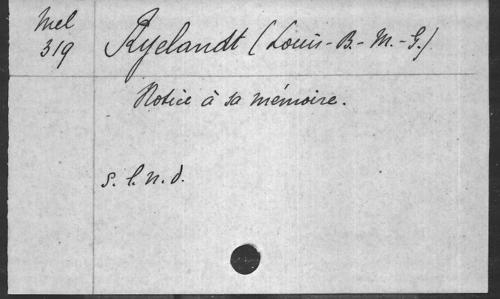 Mel
319
Ryelandt (Louis-B.-M.-G.)
Notice à sa mémoire.
s. l. n. d.